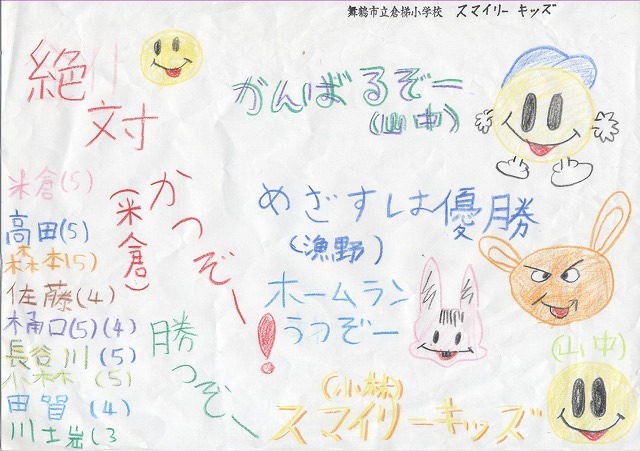 舞鶴市立倉梯小学校 スマイリーキッズ
絶対
かつぞー!
(米倉)
がんばるぞー
(山中)
めざすは優勝
(漁野)
ホームラン
うつぞー
(小林)
勝つぞー
スマイリーキッズ
(山中)
米倉(5)
高田(5)
森本(5)
佐藤(4)
樋口(5)(4)
長谷川(5)
小林(5)
田賀(4)